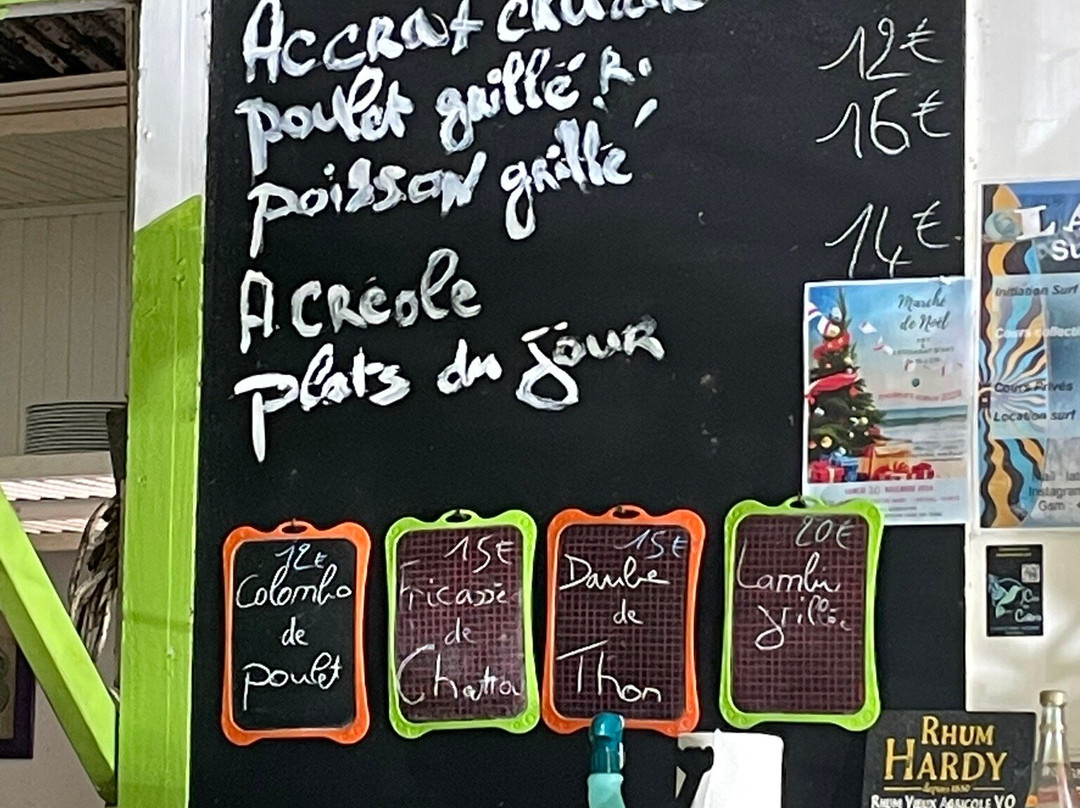 Accrat
12€
poulet grillé R.
16€
poisson grillé
14€
A CRéole
plats du jour
Marché
de Noël
LA
Su
Initiation Surf
Cours collecti
Cours Privés
Location surf
12€
Colombo
de
poulet
15€
Fricassé
de
Chatrou
15€
Daube
de
Thon
20€
Lambi
grillé
RHUM
HARDY
depuis 1830
RHUM VIEUX AGRICOLE V.O